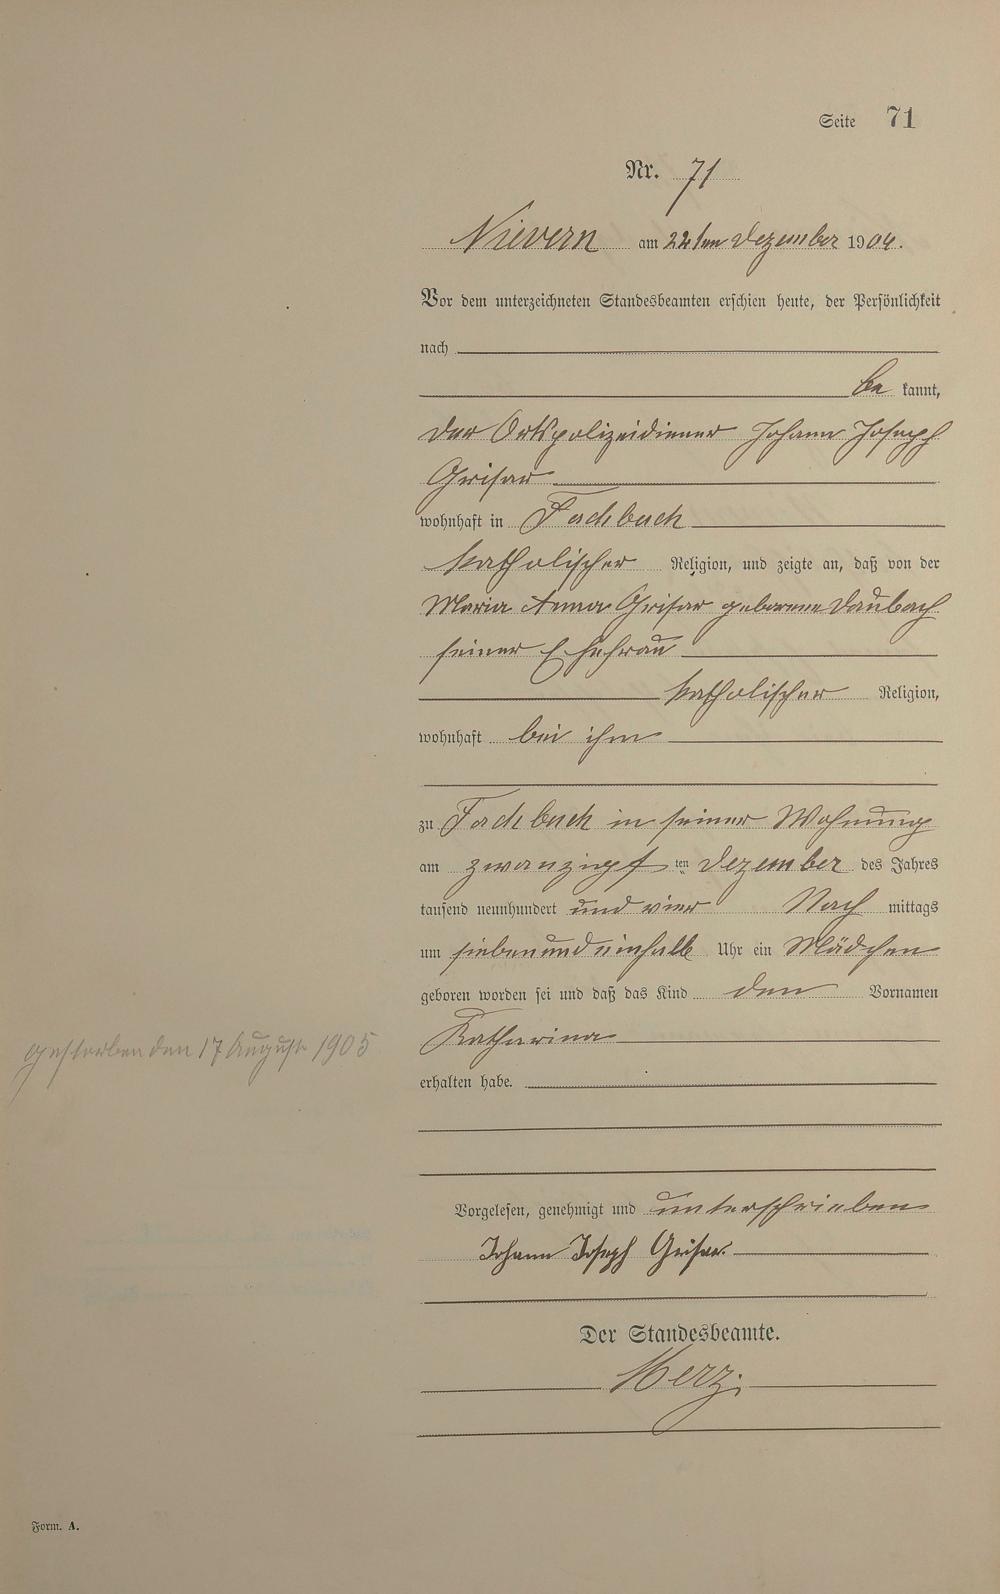 Seite 71
Nr. 71
Nievern am 22ten Dezember 1904.
Vor dem unterzeichneten Standesbeamten erschien heute, der Persönlichkeit
nach
be kannt,
der Ortspolizeidiener Johann Joseph
Grisar
wohnhaft in Fachbach
katholischer Religion, und zeigte an, daß von der
Maria Anna Grisar geborene Daubach
seiner Ehefrau
katholischer Religion,
wohnhaft bei ihm
zu Fachbach in seiner Wohnung
am zwanzigst ten Dezember des Jahres
tausend neunhundert und vier Nach mittags
um sieben und einhalb Uhr ein Mädchen
geboren worden sei und daß das Kind den Vornamen
Katharina
gestorben den 17 August 1905
erhalten habe.
Vorgelesen, genehmigt und unterschrieben
Johann Joseph Grisar
Der Standesbeamte.
Merz
Form. A.